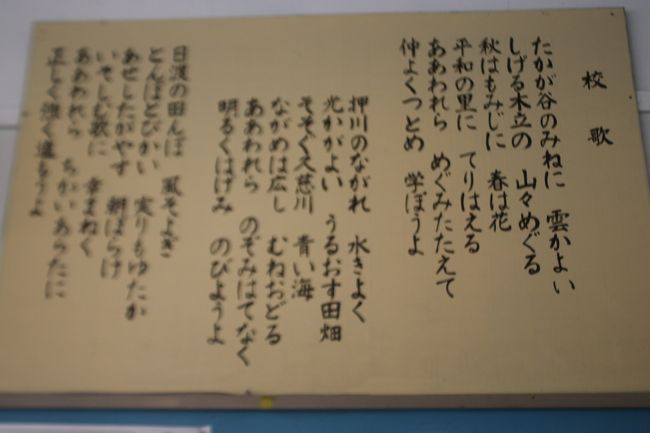 校歌
たかが谷のみねに 雲かよい
しげる木立の 山々めぐる
秋はもみじに 春は花
平和の里に てりはえる
ああわれら めぐみたたえて
仲よくつとめ 学ぼうよ
押川のながれ 水きよく
光かがよい うるおす田畑
そそぐ久慈川 青い海
ながめは広し むねおどる
ああわれら のぞみはてなく
明るくはげみ のびようよ
日渡の田んぼ 風そよぎ
とんぼとびかい 実りもゆたか
あせしたがやす 朝ぼらけ
いそしむ歌に 幸まねく
ああわれら ちかいあらたに
正しく強く進もうよ